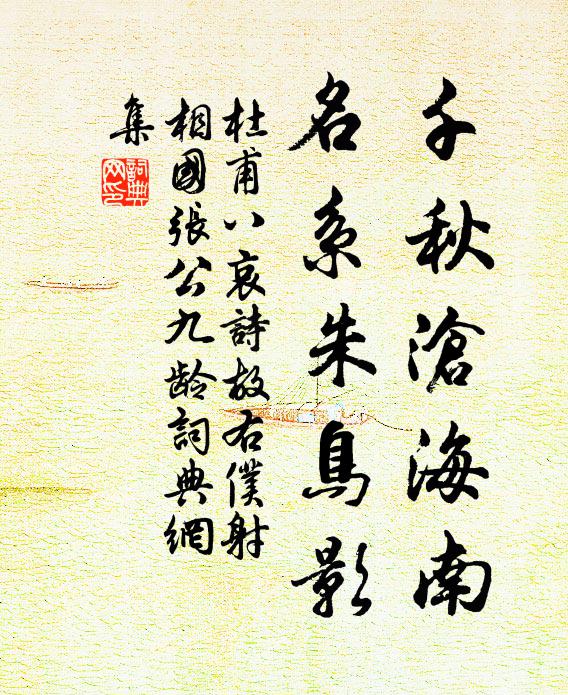 千秋滄海南
名系朱鳥影
杜甫八哀詩故右僕射
相國張公九齡詞典網
集
詞典網印